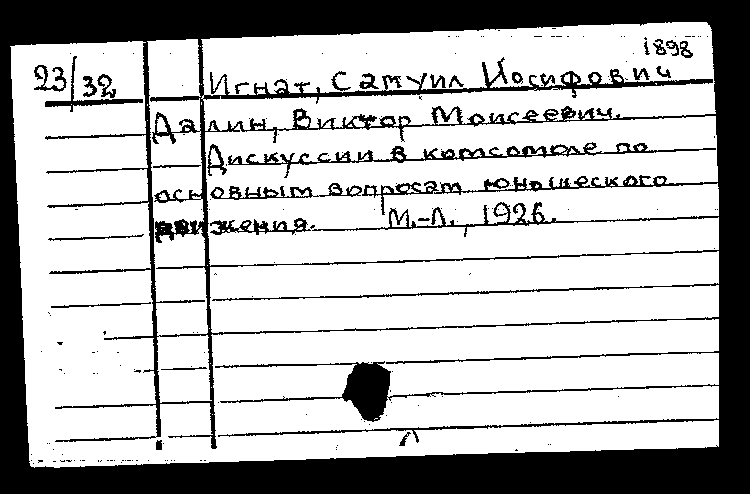 1898
23/32 Игнат, Самуил Иосифович
Далин, Виктор Моисеевич.
Дискуссии в комсомоле по
основным вопросам юношеского
движения. М.-Л., 1926.